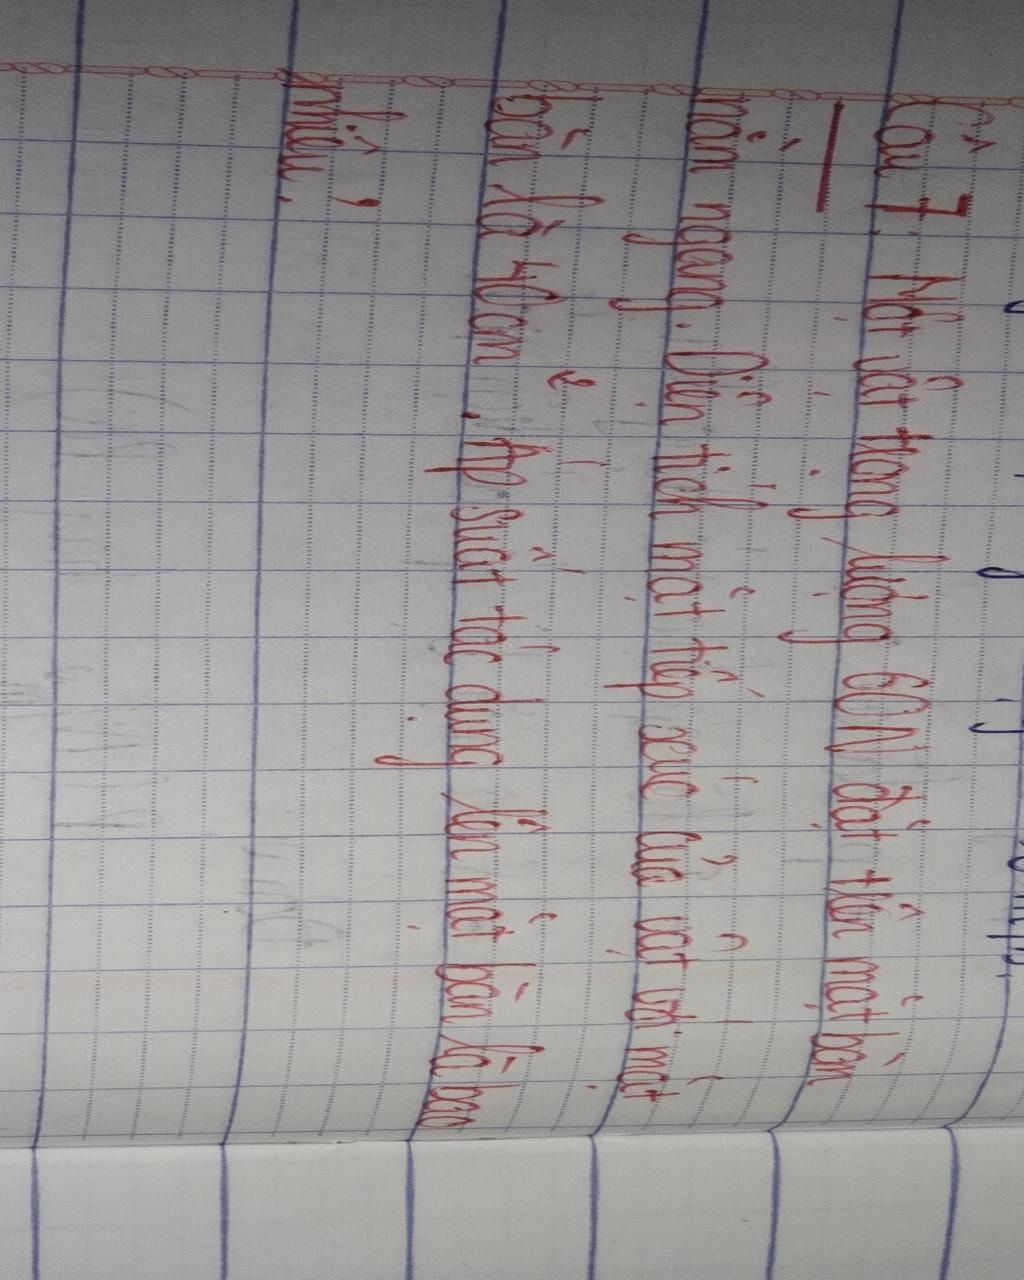 Câu 7. Một vật trọng lượng 60N đặt trên mặt bàn
nằm ngang. Diện tích mặt tiếp xúc của vật với mặt
bàn là 40cm². Áp suất tác dụng lên mặt bàn là bao
nhiêu?